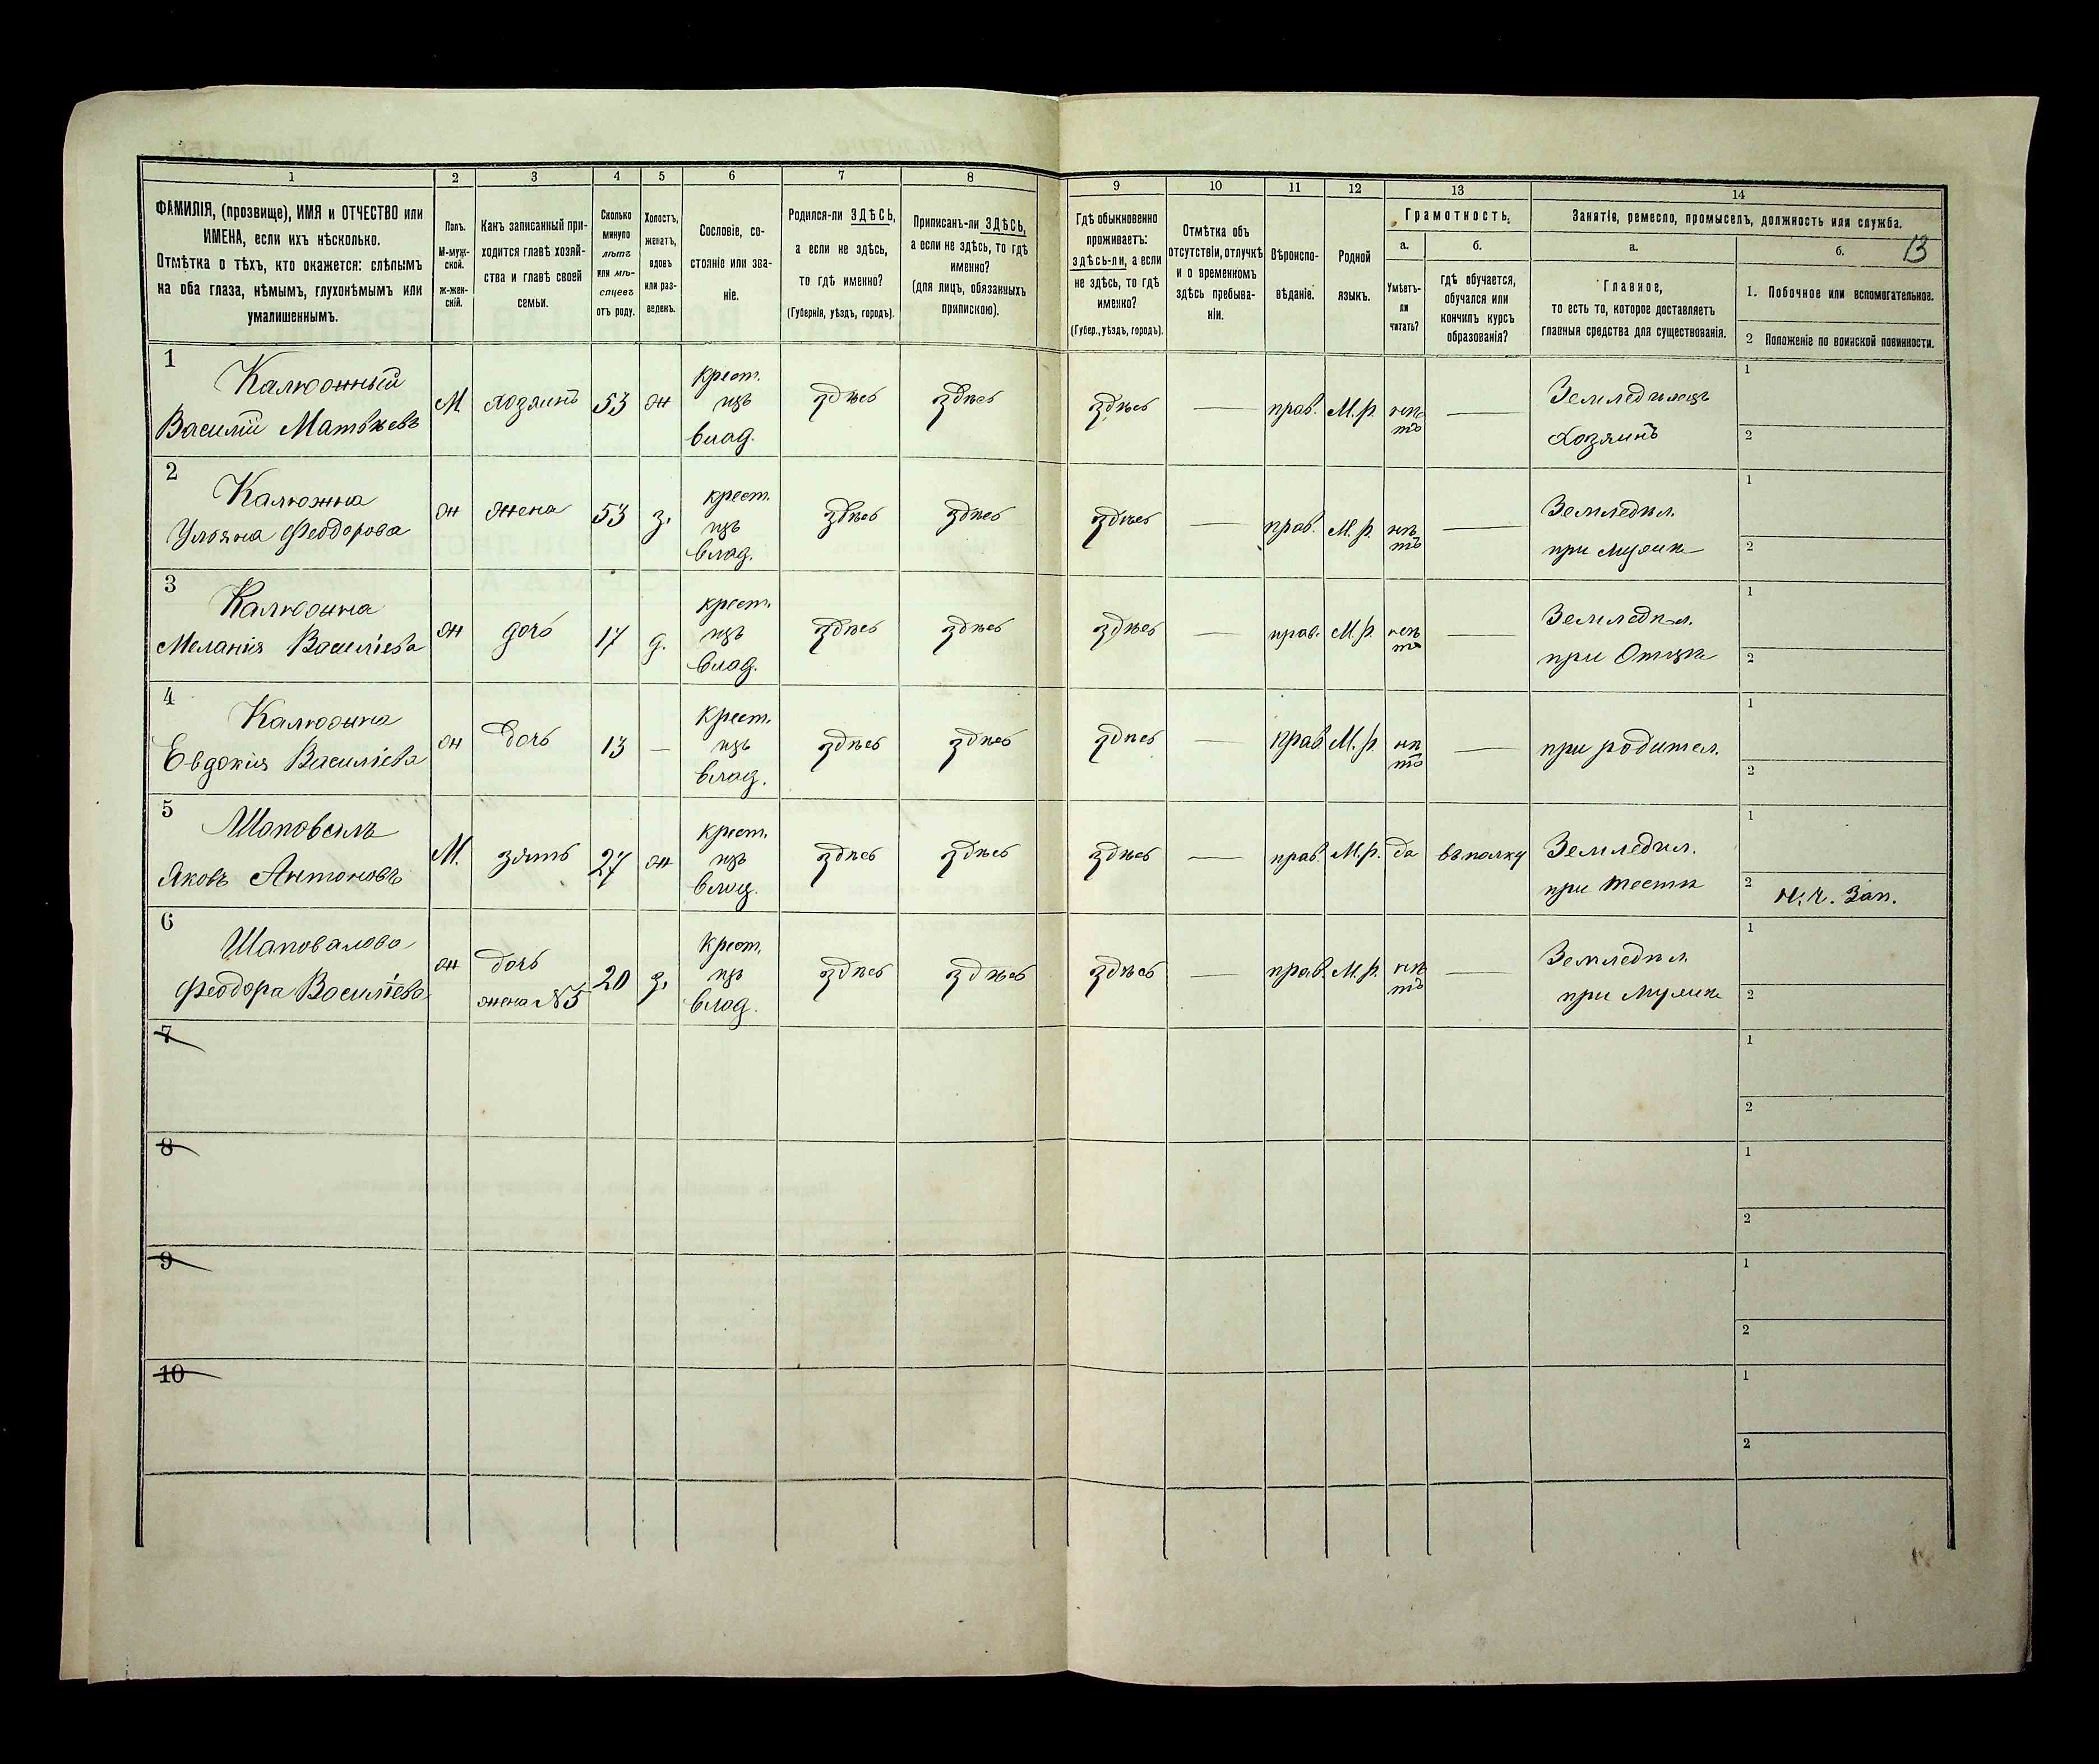 1 2 3 4 5 6 7 8 9 10 11 12 13 14
ФАМИЛІЯ, (прозвище), ИМЯ и ОТЧЕСТВО или
ИМЕНА, если ихъ нѣсколько.
Отмѣтка о тѣхъ, кто окажется: слѣпымъ
на оба глаза, нѣмымъ, глухонѣмымъ или
умалишеннымъ.
Полъ.
М-муж-
ской.
ж-жен-
скій.
Какъ записанный при-
ходится главѣ хозяй-
ства и главѣ своей
семьи.
Сколько
минуло
лѣтъ
или мѣ-
сяцевъ
отъ роду.
Холостъ,
женатъ,
вдовъ
или раз-
веденъ.
Сословіе, со-
стояніе или зва-
ніе.
Родился-ли ЗДѢСЬ,
а если не здѣсь,
то гдѣ именно?
(Губернія, уѣздъ, городъ).
Приписанъ-ли ЗДѢСЬ,
а если не здѣсь, то гдѣ
именно?
(для лицъ, обязанныхъ
припискою).
Гдѣ обыкновенно
проживаетъ:
здѣсь-ли, а если
не здѣсь, то гдѣ
именно?
(Губер., уѣздъ, городъ).
Отмѣтка объ
отсутствіи, отлучкѣ
и о временномъ
здѣсь пребыва-
ніи.
Вѣроиспо-
вѣданіе.
Родной
языкъ.
Грамотность.
а.
Умѣетъ-
ли
читать?
б.
гдѣ обучается,
обучался или
кончилъ курсъ
образованія?
Занятіе, ремесло, промыселъ, должность или служба.
а.
Главное,
то есть то, которое доставляетъ
главныя средства для существованія.
б.
13
1. Побочное или вспомогательное.
2 Положеніе по воинской повинности.
1
Калюжный
Василій Матвѣевъ
М.
хозяинъ
53
ж
крест.
изъ
влад.
здѣсь
здѣсь
здѣсь
—
прав.
М.р.
нѣ
тъ
—
Земледѣлецъ
Хозяинъ
1
2
2
Калюжна
Ульяна Феодорова
ж
жена
53
з.
крест.
изъ
влад.
здѣсь
здѣсь
здѣсь
—
прав.
М.р.
нѣ
тъ
—
Земледѣл.
при мужѣ
1
2
3
Калюжна
Меланія Василіева
ж
дочь
17
д.
крест.
изъ
влад.
здѣсь
здѣсь
здѣсь
—
прав.
М.р.
нѣ
тъ
—
Земледѣл.
при Отцѣ
1
2
4
Калюжна
Евдокія Василіева
ж
дочь
13
—
Крест.
изъ
влад.
здѣсь
здѣсь
здѣсь
—
прав
М.р.
нѣ
тъ
—
при родител.
1
2
5
Шаповалъ
Яковъ Антоновъ
М.
зять
27
ж
крест.
изъ
влад.
здѣсь
здѣсь
здѣсь
—
прав.
М.р.
да
въ полку
Земледѣл.
при тестѣ
1
2 Н.ч. Зап.
6
Шаповалова
Феодора Василіева
ж
дочь
жена №5
20
з.
Крест.
изъ
влад.
здѣсь
здѣсь
здѣсь
—
прав.
М.р.
нѣ
тъ
—
Земледѣл.
при мужѣ
1
2
7
1
2
8
1
2
9
1
2
10
1
2